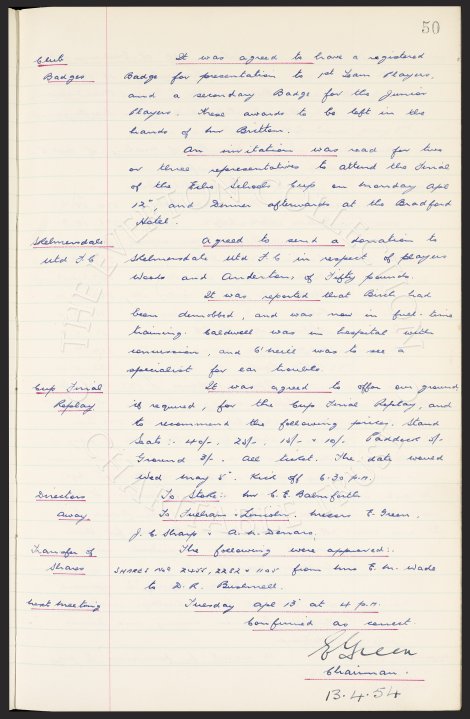 50
Club It was agreed to have a registered
Badges Badge for presentation to 1st Team Players,
and a secondary Badge for the Junior
Players. These awards to be left in the
hands of Mr Britten.
An invitation was read for two
or three representatives to attend the Final
of the Schools Cup on Monday Apl
12th, and Dinner afterwards at the Bradford
Hotel.
Skelmersdale Agreed to send a donation to
Utd F.C Skelmersdale Utd F.C in respect of players
Woods and Anderton, of Fifty pounds.
It was reported that Birch had
been demobbed, and was now in full-time
training. Caldwell was in hospital with
concussion, and O'Neill was to see a
specialist for ear trouble.
Cup Final It was agreed to offer our ground
Replay. if required, for the Cup Final Replay, and
to recommend the following prices. Stand
Seats :- 40/-. 25/-. 15/- & 10/-. Paddock 5/-
Ground 3/-. All ticket. The date would
Wed May 5th. Kick off 6.30 p.m.
Directors To Stoke:- Mr C.E. Balmforth
Away To Fulham & Lincoln. Messrs E. Green,
J.C. Sharp & A.W. Denaro.
Transfer of The following were approved:-
Shares SHARES Nos 2455, 2282 & 1105 from Mrs E.M. Wade
to D.R. Bushnell.
Next Meeting Tuesday Apl 13 at 4 p.m.
Confirmed as correct
E Green
Chairman.
13.4.54